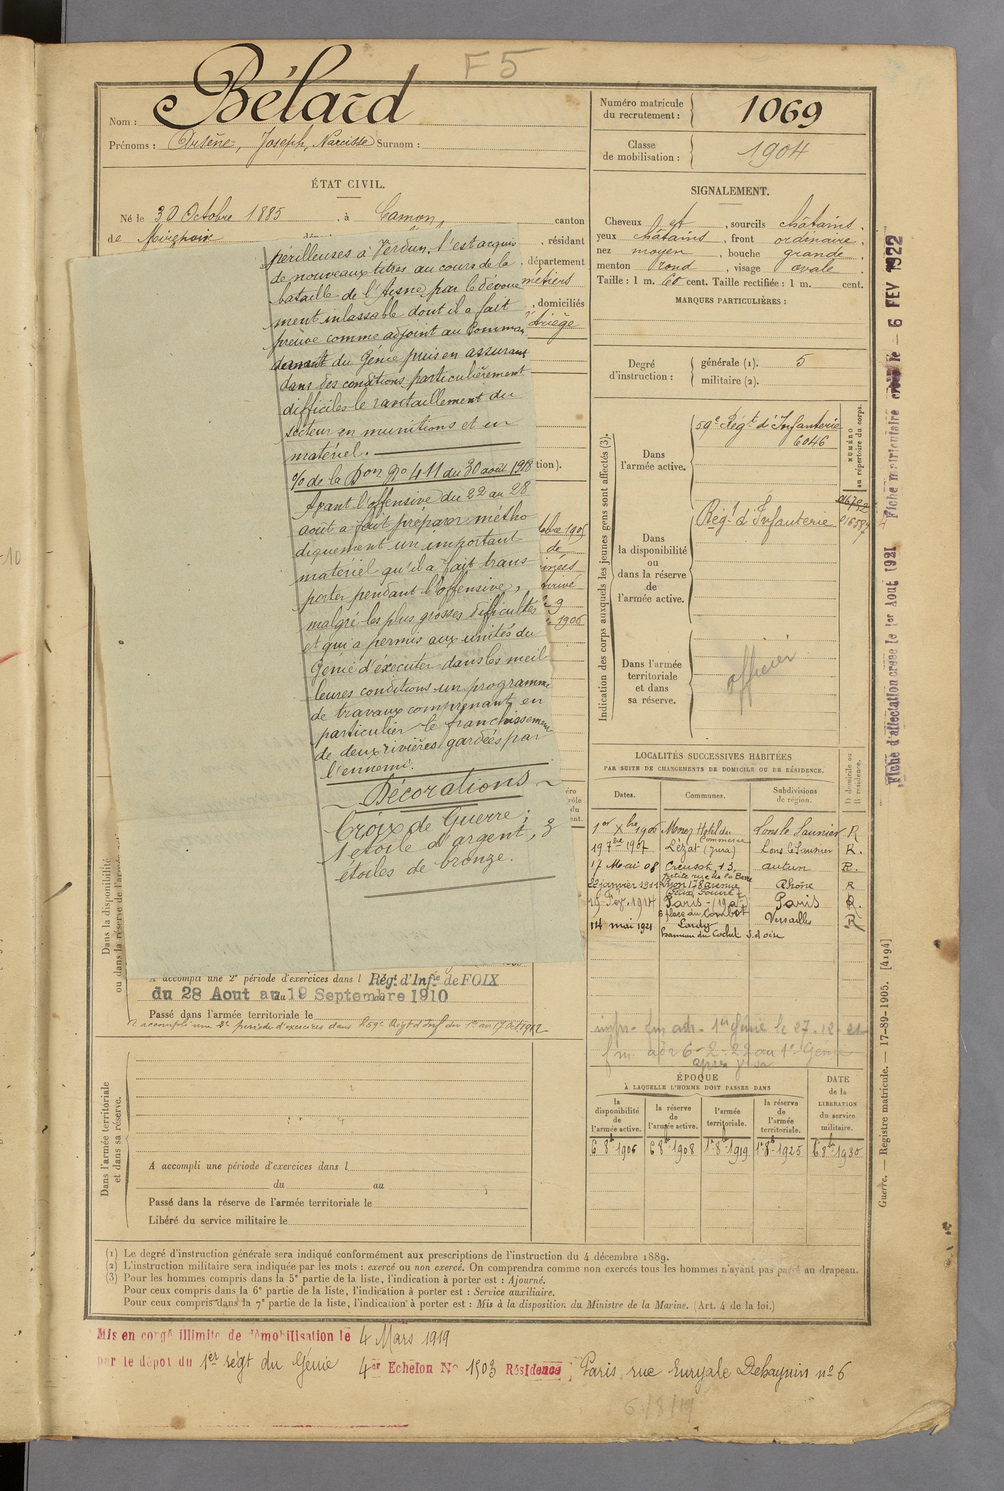 F5
Nom : Bélard
Prénoms : Arsène, Joseph, Narcisse Surnom :
ÉTAT CIVIL.
Né le 30 Octobre 1885, à Camon, canton
de Mirepoix
, résidant
département
métiers
, domiciliés
Ariège
périlleuses à Verdun, s'est acquis
de nouveaux titres au cours de la
bataille de l'Aisne par le dévoue
ment inlassable dont il a fait
preuve comme adjoint au Comman
demant du Génie puis en assurant
dans des conditions particulièrement
difficiles le ravitaillement du
secteur en munitions et en
matériel.
% de la Don No 411 du 30 août 1918
Ayant l'offensive du 22 au 28
août a fait préparer métho
diquement un important
matériel qu'il a fait trans
porter pendant l'offensive,
malgré les plus grosses difficultés
et qui a permis aux unités du
Génie d'exécuter dans les meil
leures conditions un programme
de travaux comprenant, en
particulier le franchissement
de deux rivières gardées par
l'ennemi.
Décorations
Croix de Guerre ;
1 étoile d'argent, 3
étoiles de bronze.
tion).
de
arrivé
1906
Dans la disponibilité
ou dans la réserve de l'armée
A accompli une 2e période d'exercices dans l Régt d'Infie de FOIX
du 28 Aout au 19 Septembre 1910
Passé dans l'armée territoriale le
A accompli une 2e période d'exercices dans le 59e Régt d'Inf du 1er au 17 Oct 1912
Dans l'armée territoriale
et dans sa réserve.
A accompli une période d'exercices dans l
du au
Passé dans la réserve de l'armée territoriale le
Libéré du service militaire le
Numéro matricule
du recrutement : 1069
Classe
de mobilisation : 1904
SIGNALEMENT.
Cheveux et, sourcils châtains.
yeux châtains, front ordinaire.
nez moyen, bouche grande.
menton rond, visage ovale.
Taille : 1 m. 60 cent. Taille rectifiée : 1 m. cent.
MARQUES PARTICULIÈRES :
Degré
d'instruction :
générale (1). 5
militaire (2).
Indication des corps auxquels les jeunes gens sont affectés (3).
NUMÉRO
au répertoire du corps.
Dans
l'armée active.
59e Régt d'Infanterie
6046
Dans
la disponibilité
ou
dans la réserve
de
l'armée active.
Régt d'Infanterie
Dans l'armée
territoriale
et dans
sa réserve.
officier
LOCALITÉS SUCCESSIVES HABITÉES
PAR SUITE DE CHANGEMENTS DE DOMICILE OU DE RÉSIDENCE.
D domicile ou
R résidence.
Dates. Communes. Subdivisions
de région.
1er Xbre 1906 Morez Hotel du Commerce Lons le Saunier R
19 7bre 1907 Lézat (Jura) Lons le Saunier R.
17 Mai 08 Creusot, 13, Autun R.
22 janvier 1911 Lyon 178 avenue Rhône R
Félix Faure
25 Fév. 1914 Paris - (19e) Paris R.
3 place du Combat
14 mai 1921 Versailles R
hameau du Cochet S. et Oise
ÉPOQUE
À LAQUELLE L'HOMME DOIT PASSER DANS
DATE
de la
LIBÉRATION
du service
militaire.
la
disponibilité
de
l'armée active.
la réserve
de
l'armée active.
l'armée
territoriale.
la réserve
de
l'armée
territoriale.
6 8b 1906 6 8b 1908 1r 8b 1919 1r 8b 1925 6 8b 1930
(1) Le degré d'instruction générale sera indiqué conformément aux prescriptions de l'instruction du 4 décembre 1889.
(2) L'instruction militaire sera indiquée par les mots : exercé ou non exercé. On comprendra comme non exercés tous les hommes n'ayant pas passé au drapeau.
(3) Pour les hommes compris dans la 5e partie de la liste, l'indication à porter est : Ajourné.
Pour ceux compris dans la 6e partie de la liste, l'indication à porter est : Service auxiliaire.
Pour ceux compris dans la 7e partie de la liste, l'indication à porter est : Mis à la disposition du Ministre de la Marine. (Art. 4 de la loi.)
Mis en congé illimité de démobilisation le 4 Mars 1919
par le dépôt du 1er régt du Génie 4er Echelon No 1503 Résidence ; Paris, rue Euryale Dehaynin no 6
6/8/19
Fiche d'affectation créée le 1er Août 1921 Fiche matriculaire créée le - 6 FEV 1922
Guerre. — Registre matricule. — 17-89-1905. [4194]